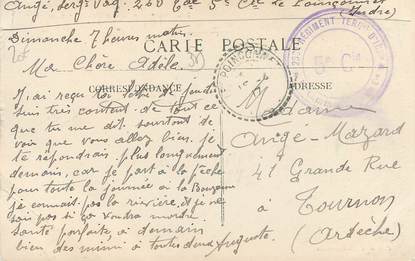 Ange, Sergt Vag. 260 5e Cie Le Poinçonnet
(Indre)
Dimanche 7 heures matin
CARTE POSTALE
Ma Chère Adèle
CORRESPONDANCE
ADRESSE
J'ai reçu ta lettre de jeudi
suis très content de tout ce
que tu me dit. sourtout de
voir que vous allez bien. je
te répondrais plus longuement
demain, car je part à la pêche
pour toute la journée à la Bouzanne
je connait pas la rivière, et je ne
sai pas si ça voudra mordre.
santé parfaite, à demain
bien des mimi à toutes deux Auguste.
POINÇONNET
RÉGIMENT TERRIT
5e Cie
Madame
Ange-Mazard
41 Grande Rue
à Tournon
(Ardèche)